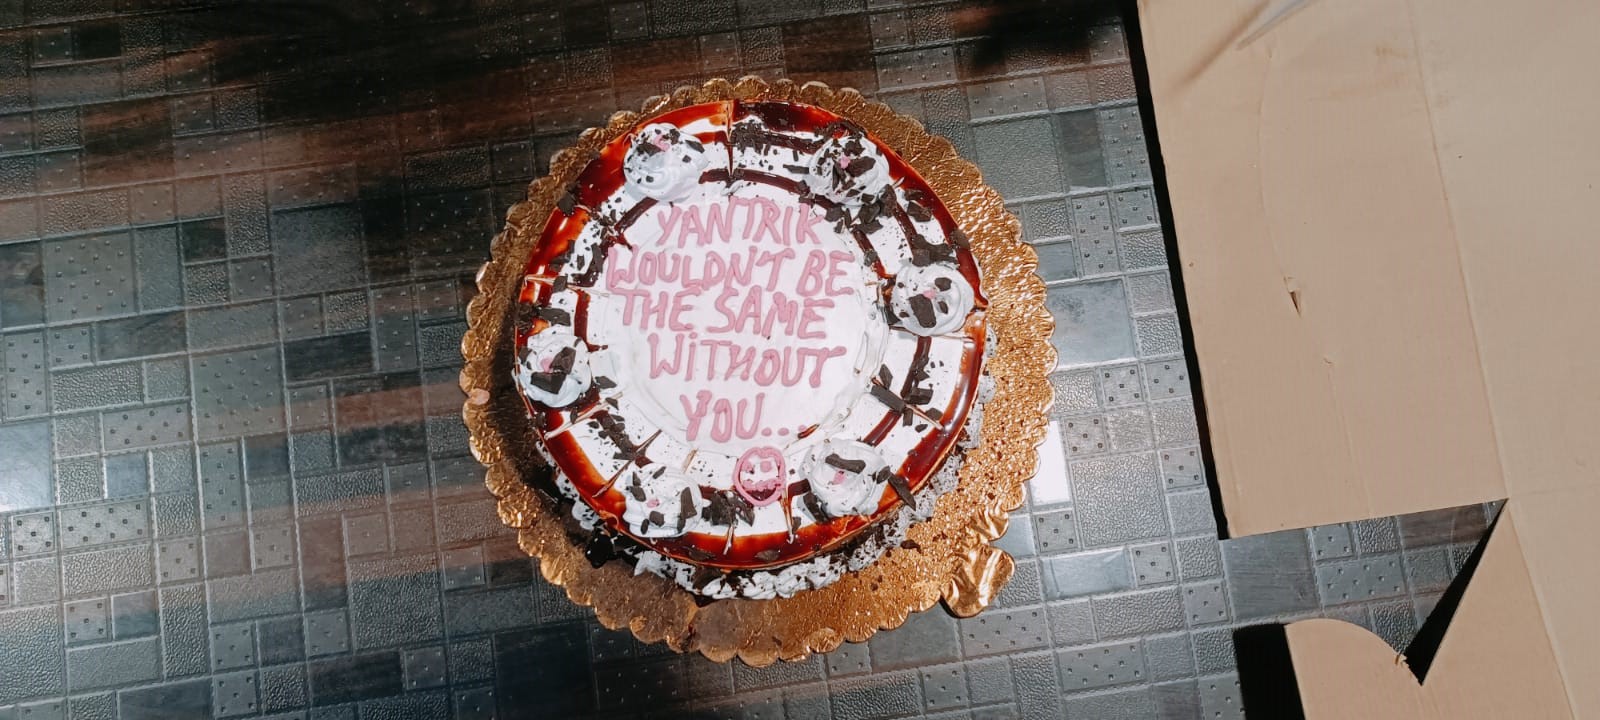 YANTRIK
WOULDN'T BE
THE SAME
WiTHOUT
YOU...